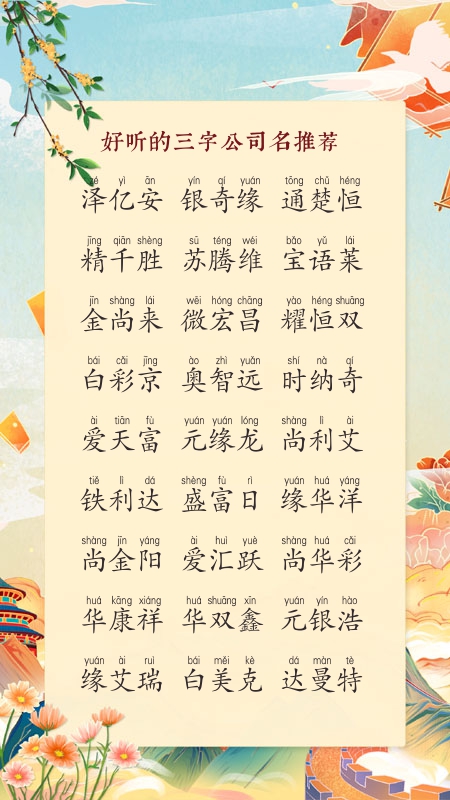 好听的三字公司名推荐
zé yì ān yín qí yuán tōng chǔ héng
泽亿安 银奇缘 通楚恒
jīng qiān shèng sū téng wéi bǎo yǔ lái
精千胜 苏腾维 宝语莱
jīn shàng lái wēi hóng chāng yào héng shuāng
金尚来 微宏昌 耀恒双
bái cǎi jīng ào zhì yuǎn shí nà qí
白彩京 奥智远 时纳奇
ài tiān fù yuán yuán lóng shàng lì ài
爱天富 元缘龙 尚利艾
tiě lì dá shèng fù rì yuán huá yáng
铁利达 盛富日 缘华洋
shàng jīn yáng ài huì yuè shàng huá cǎi
尚金阳 爱汇跃 尚华彩
huá kāng xiáng huá shuāng xīn yuán yín hào
华康祥 华双鑫 元银浩
yuán ài ruì bái měi kè dá màn tè
缘艾瑞 白美克 达曼特